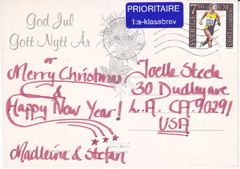 God Jul
Gott Nytt År
PRIORITAIRE
1:a-klassbrev
SVERIGE
7.50
VM
or
Merry Christmas
&
Happy New Year!
Madleine & Stefan
Joelle Steele
30 Dudley ave
L.A. CA. 90291
USA